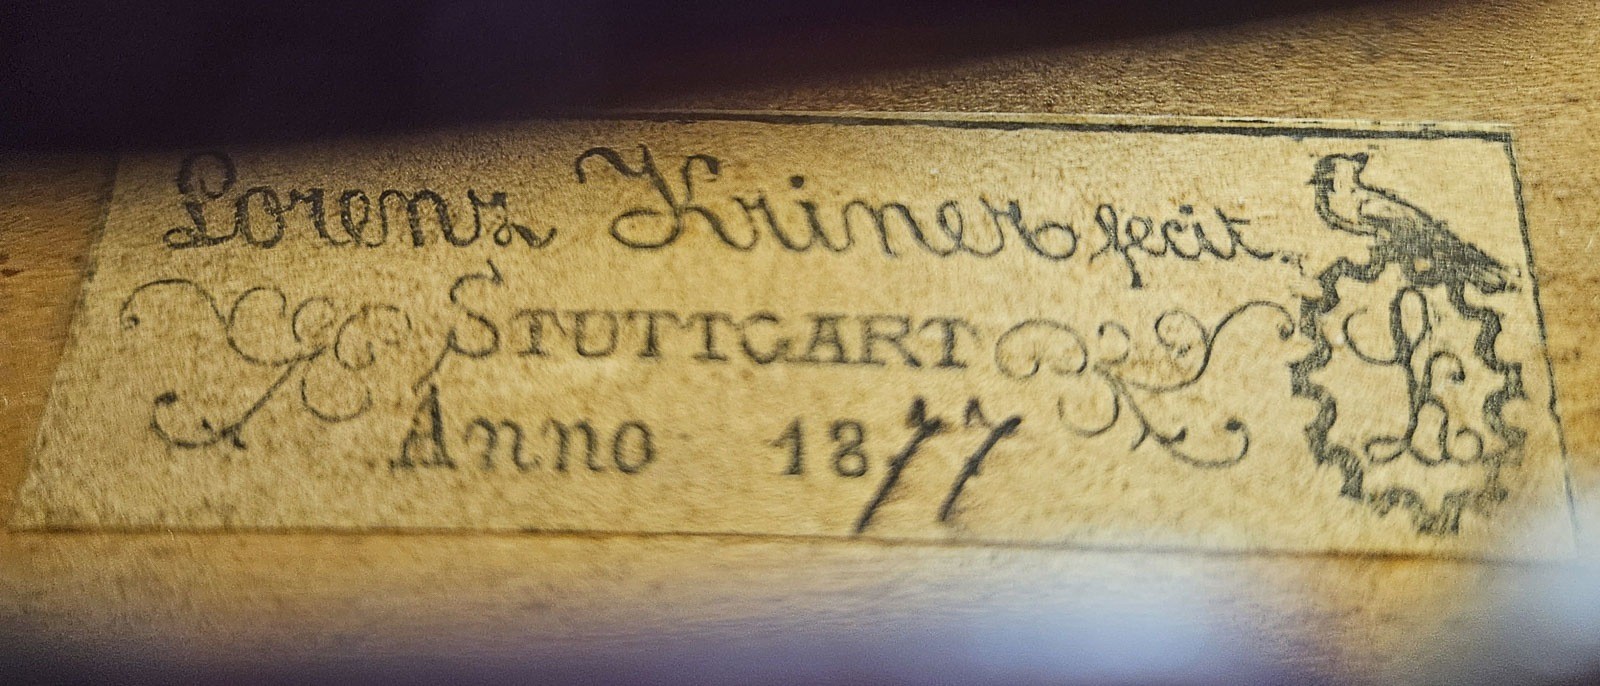 Lorenz Kriner fecit.
STUTTGART
Anno 1877